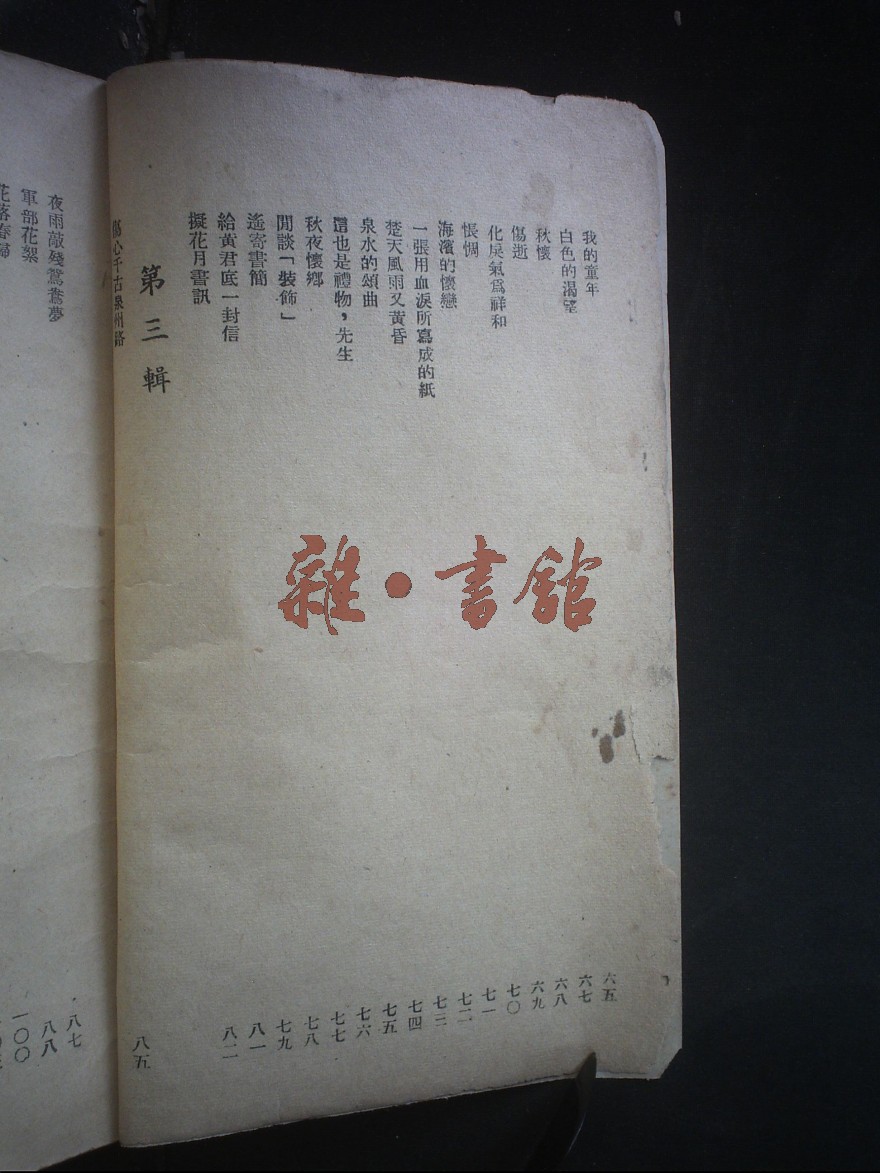 我的童年 六五
白色的渴望 六七
秋懷 六八
傷逝 六九
化戾氣爲祥和 七〇
悵惆 七一
海濱的懷戀 七二
一張用血淚所寫成的紙 七三
楚天風雨又黃昏 七四
泉水的頌曲 七五
這也是禮物，先生 七六
秋夜懷鄉 七七
閒談「裝飾」 七八
遙寄書簡 七九
給黃君底一封信 八一
擬花月書訊 八二
第三輯
傷心千古泉州路 八五
夜雨敲殘鴛鴦夢 八七
軍部花絮 八八
花落春歸 一〇〇
雜·書館